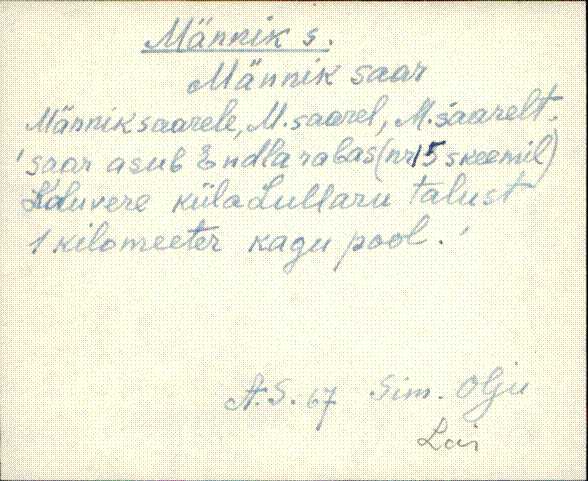 Männik s.
Männik saar
Männiksaarele, M.saarel, M.saarelt.
'saar asub Endla rabas (nr 15 skeemil)
küla Lullaru talust
1 kilomeeter kagu pool.'
A.S. 67 Sim. Olju